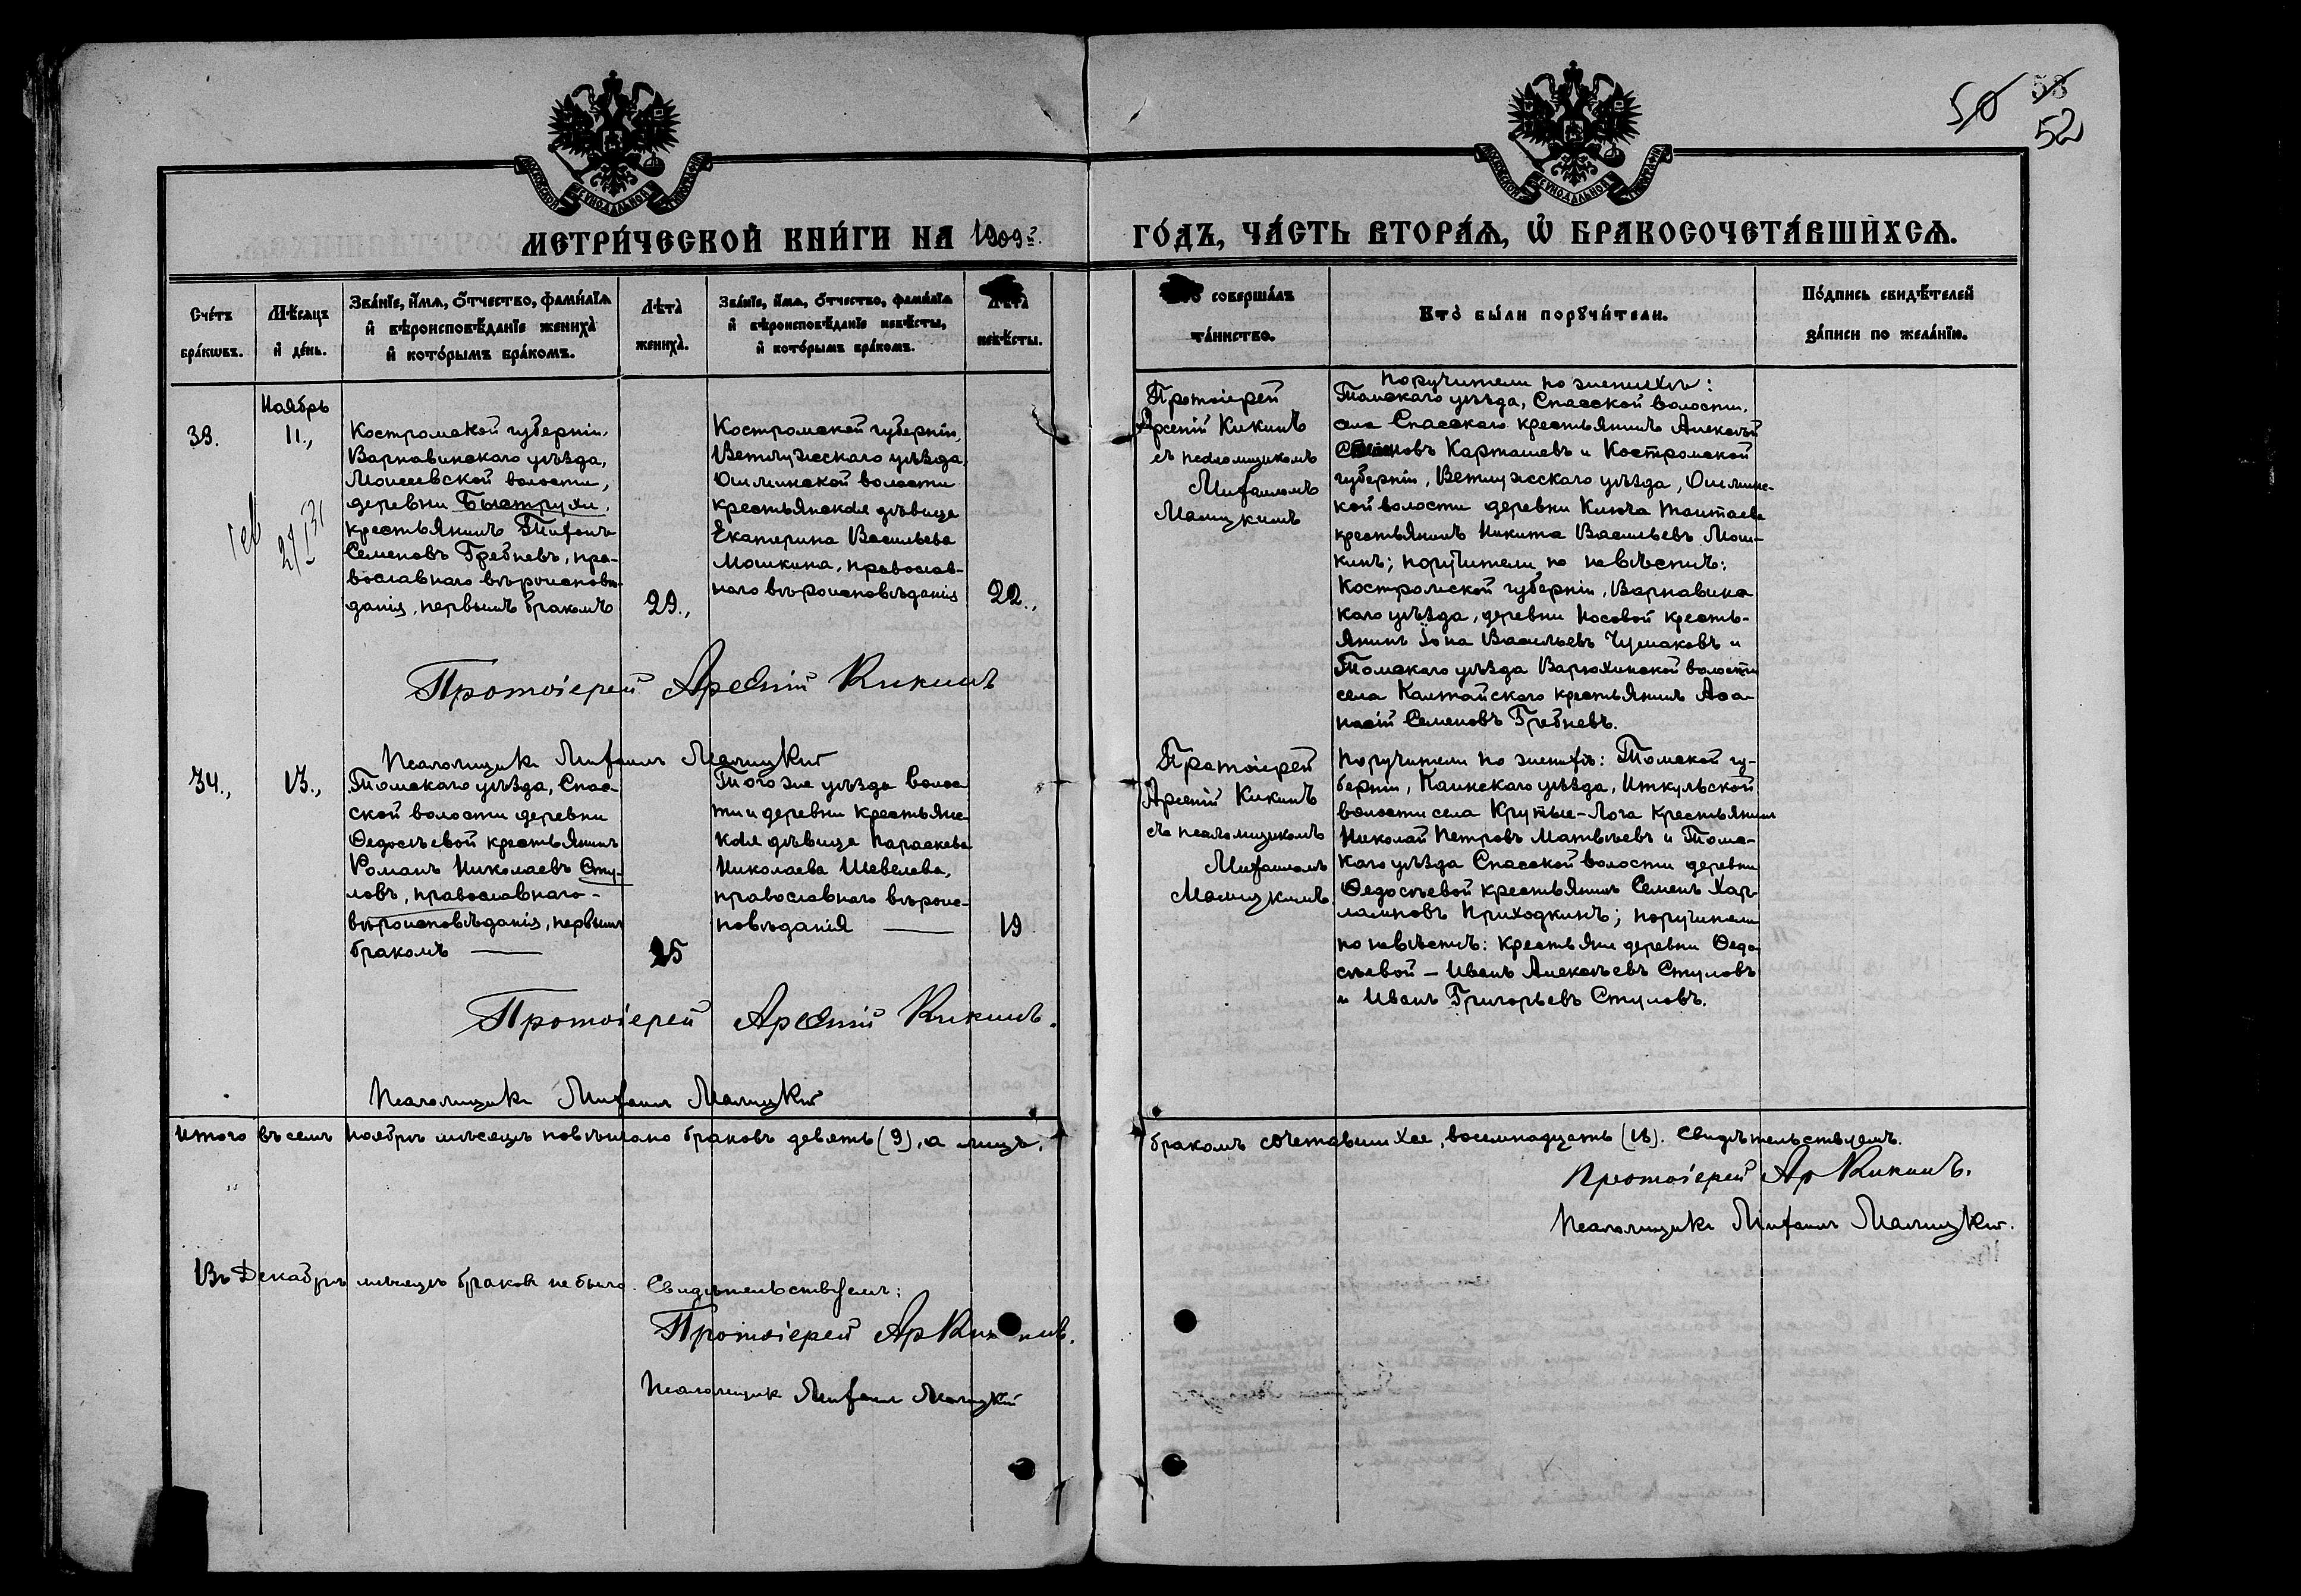 50 58
52
МОСКОВСКОЙ СѴНОДАЛЬНОЙ ТИПОГРАФІИ
МОСКОВСКОЙ СѴНОДАЛЬНОЙ ТИПОГРАФІИ
МЕТРИ́ЧЕСКОЙ КНИ́ГИ НА 1909 г.
ГО́ДЪ, ЧА́СТЬ ВТОРА́Ѧ, Ѡ҆ БРАКОСОЧЕТА́ВШИХСѦ.
Сче́тъ
бра́кѡвъ.
Мѣ́сѧцъ
и҆ де́нь.
Зва́нїе, и҆́мѧ, ѻ҆́тчество, фами́лїѧ
и҆ вѣроисповѣ́данїе жениха̀
и҆ кото́рымъ бра́комъ.
Лѣ́та
жениха̀.
Зва́нїе, и҆́мѧ, ѻ҆́тчество, фами́лїѧ
и҆ вѣроисповѣ́данїе невѣ́сты,
и҆ кото́рымъ бра́комъ.
Лѣ́та
невѣ́сты.
соверша́лъ
та́инство.
Кто̀ бы́ли порꙋчи́тели.
По́дпись свидѣ́телей
за́писи по жела́нїю.
Ноябрь
33.
11.,
Костромской губерніи,
Варнавинскаго уѣзда,
волости,
деревни
крестьянинъ Тифонъ
Семеновъ Гребневъ, пра-
вославнаго вѣроисповѣ-
данія, первымъ бракомъ
29.,
Костромской губерніи,
Ветлужскаго уѣзда,
Ошминской волости
крестьянская дѣвица
Екатерина Васильева
Мошкина, православ-
наго вѣроисповѣданія
22.,
Протоіерей Арсеній Кикинъ
Псаломщикъ Михаилъ Малицкій
Протоіерей
Арсеній Кикинъ
съ псаломщикомъ
Михаиломъ
Малицкимъ
Поручители по женихѣ:
Томскаго уѣзда, Спасской волости,
села Спасскаго крестьянинъ Алексѣй
Карташевъ и Костромской
губерніи, Ветлужскаго уѣзда, Ошминс-
кой волости деревни
крестьянинъ Никита Васильевъ Мош-
кинъ; поручители по невѣстѣ:
Костромской губерніи, Варнавинс
каго уѣзда, деревни Носовой кресть-
янинъ Іона Васильевъ Чумаковъ и
Томскаго уѣзда Варюхинской волости
села Калтайскаго крестьянинъ Аѳа-
насій Семеновъ Гребневъ.
34.,
13.,
Томскаго уѣзда, Спас-
ской волости деревни
Ѳедосѣевой крестьянинъ
Романъ Николаевъ Сту-
ловъ, православнаго-
вѣроисповѣданія, первымъ
бракомъ —
25
Того же уѣзда волос
ти и деревни крестьянс-
кая дѣвица Параскева
Николаева Шевелева,
православнаго вѣроис-
повѣданія —
19
Протоіерей Арсеній Кикинъ.
Псаломщикъ Михаилъ Малицкій
Протоіерей
Арсеній Кикинъ
съ псаломщикомъ
Михаиломъ
Малицкимъ.
Поручители по женихѣ: Томской гу-
берніи, Каинскаго уѣзда, Иткульской
волости села Крутые-Лога крестьянинъ
Николай Петровъ Матвѣевъ и Томс-
каго уѣзда Спасской волости деревни
Ѳедосѣевой крестьянинъ Семенъ Хар-
лампіовъ Приходкинъ; поручители
по невѣстѣ: крестьяне деревни Ѳедо-
сѣевой – Иванъ Алексѣевъ Стуловъ
и Иванъ Григорьевъ Стуловъ.
Итого въ семъ Ноябрѣ мѣсяцѣ повѣнчано браковъ девять (9), а лицъ,
бракомъ сочетавшихся, восемнадцать (18). Свидѣтельствуемъ.
Протоіерей Ар Кикинъ.
Псаломщикъ Михаилъ Малицкій.
Въ Декабрѣ мѣсяцѣ браковъ не было. Свидѣтельствуемъ:
Протоіерей Ар Кикинъ.
Псаломщикъ Михаилъ Малицкій